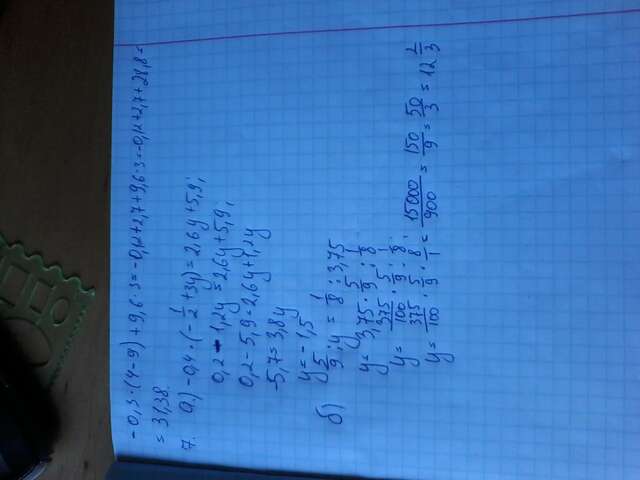 -0,3·(4-9)+9,6·3=-0,12+2,7+9,6·3=-0,12+2,7+28,8=
=31,38.
7. а) -0,4·(-1/2+3y)=2,6y+5,9;
0,2-1,2y=2,6y+5,9;
0,2-5,9=2,6y+1,2y
-5,7=3,8y
y=-1,5
б) 5/9:y=1/8:3,75
y=3,75·5/9:1/8
y=375/100·5/9:1/8;
y=375/100·5/9·8/1=15000/900=150/9=50/3=12 2/3